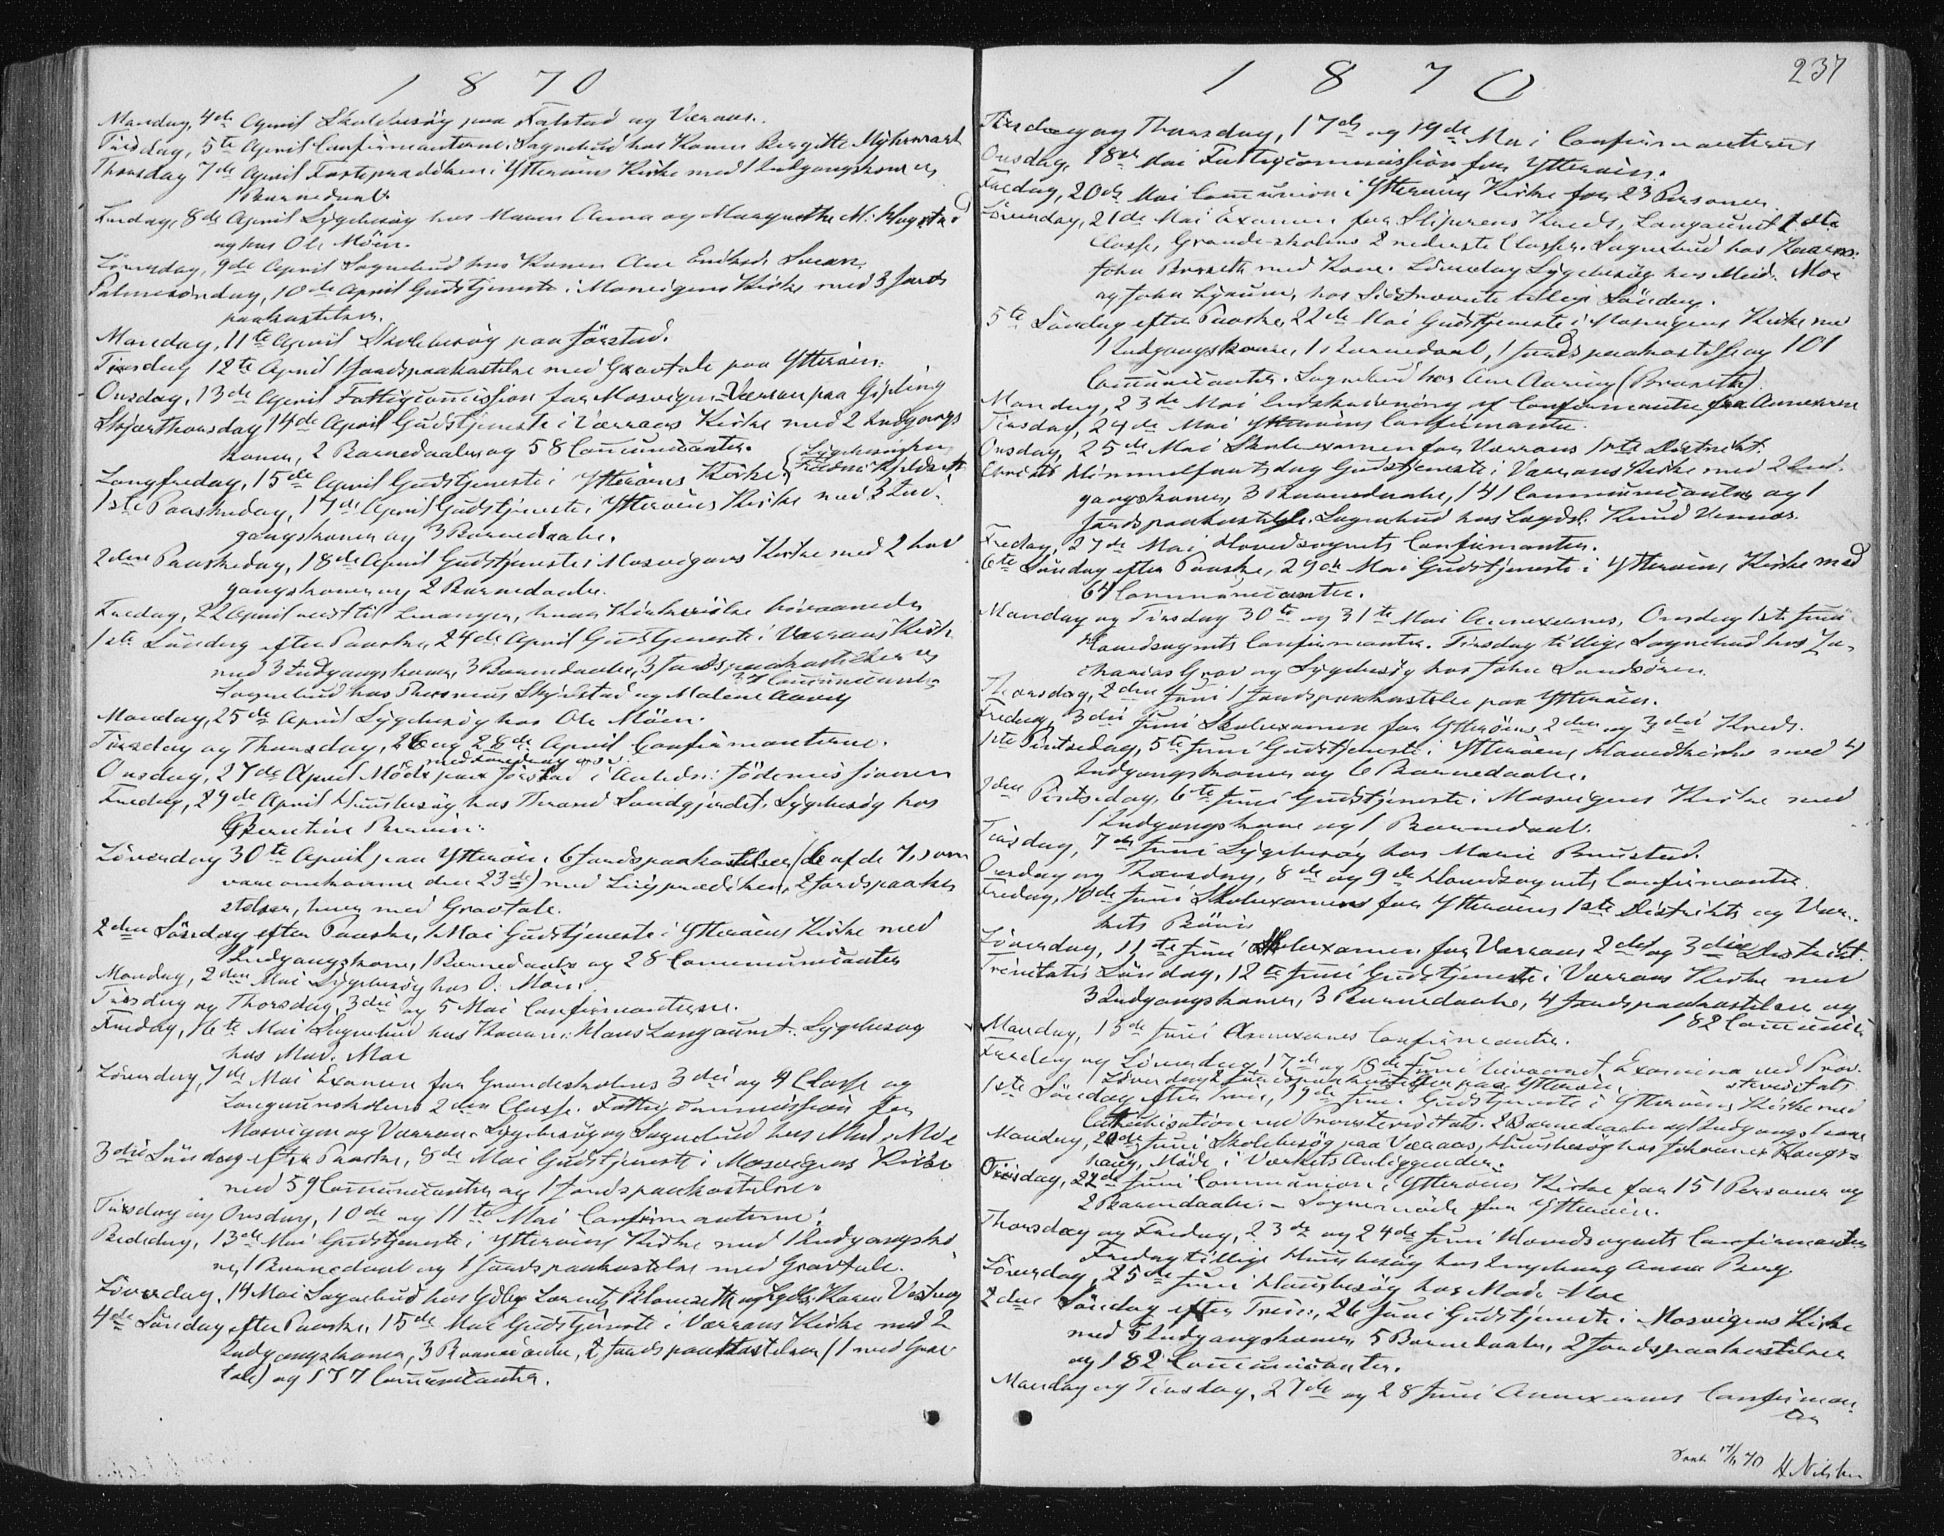 1870
Mandag, 4de April Skolebesög paa Falstad og Værran.
Tirsdag, 5te April Confirmanterne. Sognebud hos Konen Bergitte Myhrvart
Thorsdag 7de April Fasteprædiken i Ytteröens Kirke med 1 Indgangskone og
Barnedaab.
Fredag, 8de April Sygebesög hos Maren Anna og Margrethe M.
og hos Ole Möin.
Löverdag, 9de April Sognebud hos Konen Ane
Palmesöndag, 10de April Gudstjeneste i Mosvigens Kirke med 3 Jords
paakastelser.
Mandag, 11te April Skolebesög paa Jörstad.
Tirsdag 12te April 1 Jordspaakastelse med Gravtale paa Ytteröen.
Onsdag, 13de April Fattigcomission for Mosvigen-Værran paa Gipling
Skjærthorsdag 14de April Gudstjeneste i Værrans Kirke med 2 Indgangs
koner, 2 Barnedaaber og 58 Comunicanter.
Langfredag, 15de April Gudstjeneste i Ytteröens Kirke.
1ste Paaskedag, 17de April Gudstjeneste i Ytteröens Kirke med 3 Ind-
gangskoner og 3 Barnedaabe.
2den Paaskedag, 18de April Gudstjeneste i Mosvigens Kirke med 2
gangskoner og 2 Barnedaabe.
Fredag, 22 April reist til Levanger,
1ste Söndag efter Paaske, 24de April Gudstjeneste i Værrans Kirke
med 3 Indgangskoner, 3 Barnedaabe, 3 Jordspaakastelser og
Comunicanter
Sognebud hos Skjelstad og Malene Aavig
Mandag, 25de April Sygebesög hos Ole Möin.
Tirsdag og Thorsdag, 26 og 28de April Confirmanterne.
Onsdag, 27de April Möde paa Jörstad i Anledn: Jödemissionen
med Foredrag
Fredag, 29de April Huusbesög hos Sandgjerdet. Sygebesög hos
Löverdag 30te April paa Ytteröen 6 Jordspaakastelser (6 af de 7, som
vare omkomne den 23de) med Liigprædiken, 2 Jordspaaka
stelser, hver med Gravtale.
2den Söndag efter Paaske, 1 Mai Gudstjeneste i Ytteröens Kirke med
1 Indgangskone, 1 Barnedaab og 28 Communicanter
Mandag, 2den Mai Sygebesög hos O. Möin
Tirsdag og Thorsdag, 3die og 5 Mai Confirmanterne.
Fredag, 6te Mai Sognebud hos Hans Langaunet. Sygebesög
hos Mad. Moe
Löverdag, 7de Mai Examen for Grandeskolens 3die og 4 Classe og
Langaunskolens 2den Classe. Fattigcommission for
Mosvigen og Værran. Sygebesög og Sognebud hos Mad. Moe
3die Söndag efter Paaske, 8de Mai Gudstjeneste i Mosvigens Kirke
med 59 Comunicanter og 1 Jordspaakastelse.
Tirsdag og Onsdag, 10de og 11te Mai Confirmanterne.
Bededag, 13de Mai Gudstjeneste i Ytteröens Kirke med 1 Indgangsko
ne, 1 Barnedaab og 1 Jordspaakastelse med Gravtale.
Löverdag, 14 Mai Sognebud hos Lorentz
4de Söndag efter Paaske, 15de Mai Gudstjeneste i Værrans Kirke med 2
Indgangskoner, 3 Barnedaabe, 2 Jordspaakastelser (1 med Grav
tale) og 177 Comunicanter.
1870
237
Tirsdag og Thorsdag, 17de og 19de Mai Confirmanterne
Onsdag, 18de Mai Fattigcommission for Ytteröen.
Fredag, 20de Mai Comunion i Ytteröens Kirke for 23 Personer.
Löverdag, 21de Mai Examen for Sliperens Kreds, Langaunet 1ste
Classe, Grande-skolens 2 nederste Classer. Sognebud hos
John med Kone. Löverdag Sygebesög hos Mad. Moe
og John hos tillige Söndag.
5te Söndag efter Paaske, 22de Mai Gudstjeneste i Mosvigens Kirke med
1 Indgangskone, 1 Barnedaab, 1 Jordspaakastelse og 101
Comunicanter. Sognebud hos Ane Aaring
Mandag, 23de Mai Indskrivning af Confirmanter fra Annexerne
Tirsdag, 24de Mai Ytteröens Confirmanter.
Onsdag, 25de Mai Skoleexamen for Værrans 1ste Distrikt.
Christi Himmelfartsdag Gudstjeneste i Værrans Kirke med 2 Ind-
gangskoner, 3 Barnedaabe, 141 Communicanter og 1
Jordspaakastelse. Sognebud hos Knud
Fredag, 27de Mai Hovedsognets Confirmanter.
6te Söndag efter Paaske, 29de Mai Gudstjeneste i Ytteröens Kirke med
64 Communicanter.
Mandag og Tirsdag 30te og 31te Mai Annexernes, Onsdag 1ste Juni
Hovedsognets Confirmanter. Tirsdag tillige Sognebud hos Za-
charias Grav og Sygebesög hos John Sundsören.
Thorsdag, 2den Juni 1 Jordspaakastelse paa Ytteröen.
Fredag, 3die Juni Skoleexamen for Ytteröens 2den og 3die Kreds.
1ste Pintsedag, 5te Juni Gudstjeneste i Ytteröens Hovedkirke med 4
Indgangskoner og 6 Barnedaabe.
2den Pintsedag, 6te Juni Gudstjeneste i Mosvigens Kirke med
1 Indgangskone og 1 Barnedaab.
Tirsdag, 7de Juni Sygebesög hos Marie
Onsdag og Thorsdag, 8de og 9de Hovedsognets Confirmanter
Fredag, 10de Juni Skoleexamen for Ytteröens 1ste Distrikts og Vær-
kets Börn
Löverdag, 11te Juni Skoleexamen for Værrans 2det og 3die Distrikt.
Trinitatis Söndag, 12te Juni Gudstjeneste i Værrans Kirke med
3 Indgangskoner, 3 Barnedaabe, 4 Jordspaakastelser og
182 Comunic
Mandag, 13de Juni Annexernes Confirmanter.
Fredag og Löverdag, 17de og 18de Juni Examina ved Prov-
stevisitats
Löverdag Jordspaakastelse paa Ytteröen.
1ste Söndag efter Trin., 19de Juni Gudstjeneste i Ytteröens Kirke med
Cathechisation ved Provstevisitats. 2 Barnedaabe og 1 Indgangskone
Mandag, 20de Juni Skolebesög paa Værran, Huusbesög hos Johannes
haug, Möde i Værkets Anliggender.
Onsdag, 22de Juni Communion i Ytteröens Kirke for 151 Personer og
2 Barnedaabe. – Sognemöde for Ytteröen.
Thorsdag og Fredag, 23de og 24de Juni Hovedsognets Confirmanter
Fredag tillige Huusbesög hos Ingeborg Anna Berg.
Löverdag, 25de Juni Huusbesög hos Mad. Moe
2den Söndag efter Trin:, 26 Juni Gudstjeneste i Mosvigens Kirke
med 5 Indgangskoner, 5 Barnedaabe, 2 Jordspaakastelser
og 182 Comunicanter.
Mandag og Tirsdag, 27de og 28 Juni Annexernes Confirman-
ter
17/11 70 H. Nilsen